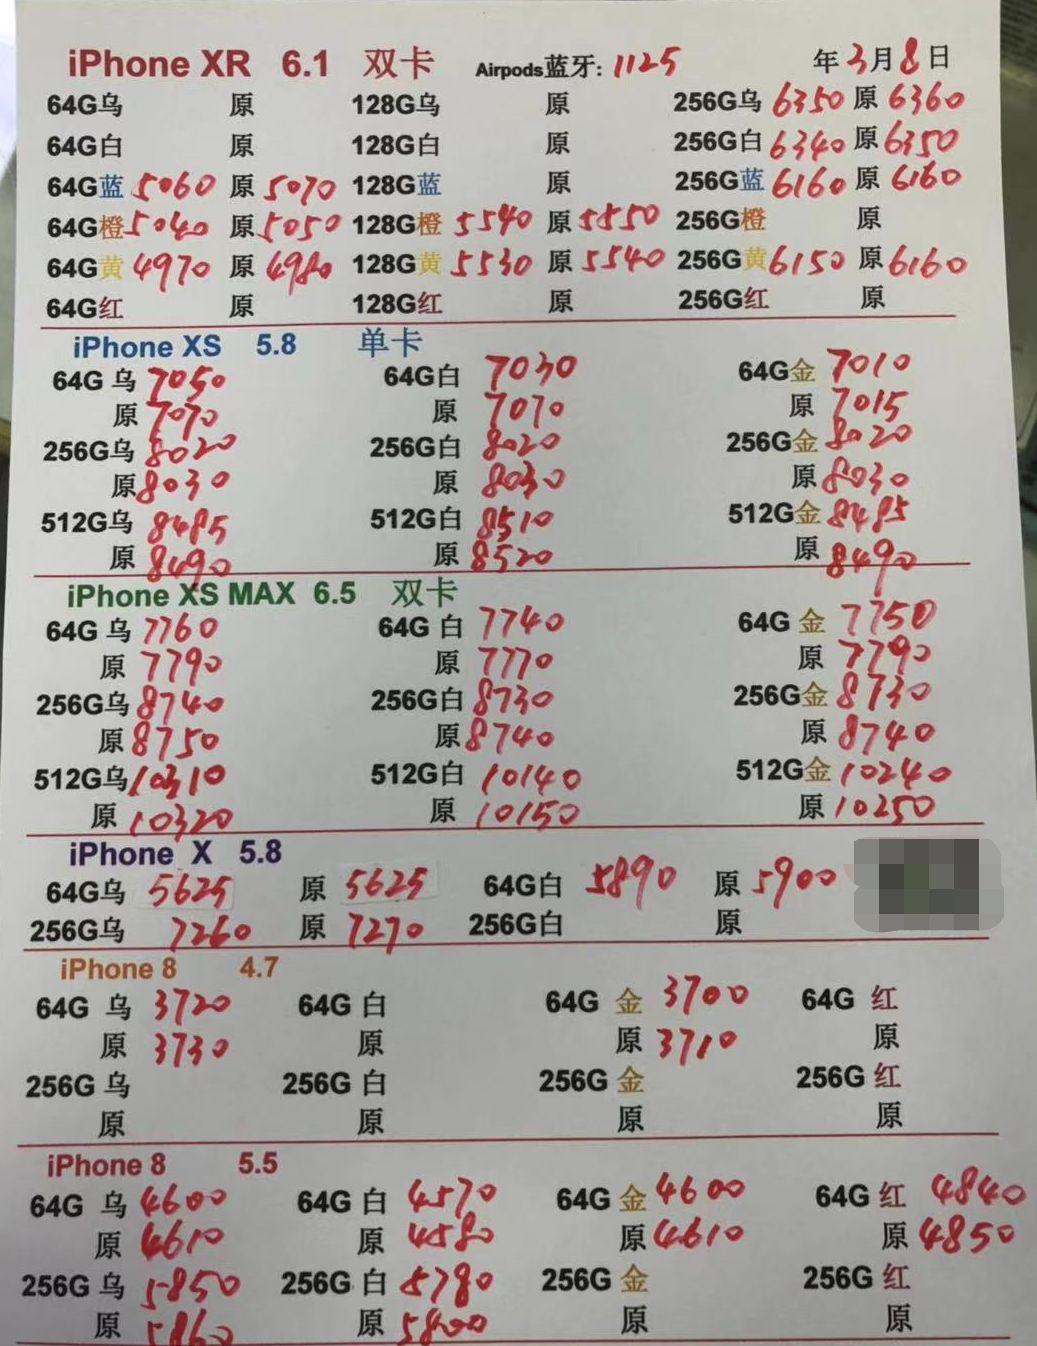 iPhone XR 6.1 双卡 Airpods蓝牙: 1125 年3月8日
64G乌 原 128G乌 原 256G乌 6350 原 6360
64G白 原 128G白 原 256G白 6340 原 6350
64G蓝 5060 原 5070 128G蓝 原 256G蓝 6160 原 6160
64G橙 5040 原 5050 128G橙 5540 原 5550 256G橙 原
64G黄 4970 原 4980 128G黄 5530 原 5540 256G黄 6150 原 6160
64G红 原 128G红 原 256G红 原
iPhone XS 5.8 单卡
64G 乌 7050 64G白 7030 64G金 7010
原 7070 原 7070 原 7015
256G乌 8020 256G白 8020 256G金 8020
原 8030 原 8030 原 8030
512G乌 8485 512G白 8510 512G金 8485
原 8490 原 8520 原 8490
iPhone XS MAX 6.5 双卡
64G 乌 7760 64G 白 7740 64G 金 7750
原 7790 原 7770 原 7790
256G乌 8740 256G白 8730 256G金 8730
原 8750 原 8740 原 8740
512G乌 10310 512G白 10140 512G金 10240
原 10320 原 10150 原 10250
iPhone X 5.8
64G乌 5625 原 5625 64G白 5890 原 5900
256G乌 7260 原 7270 256G白 原
iPhone 8 4.7
64G 乌 3720 64G 白 64G 金 3700 64G 红
原 3730 原 原 3710 原
256G 乌 256G 白 256G 金 256G 红
原 原 原 原
iPhone 8 5.5
64G 乌 4600 64G 白 4570 64G 金 4600 64G 红 4840
原 4610 原 4580 原 4610 原 4850
256G 乌 5850 256G 白 5790 256G 金 256G 红
原 5860 原 5800 原 原